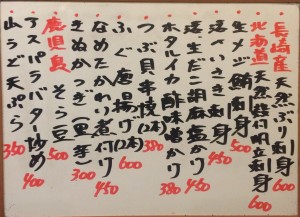 長崎産 天然ぶり刺身 600
北海道 天然 帆立刺身 600
生メジ鮪刺身 500
活〆いさき刺身 450
活生だこ胡麻塩かけ 500
ホタルイカ酢味噌かけ 380
つぶ貝串焼(2本) 380
ふぐ唐揚げ(2本) 600
なめたかれい煮付け 450
きぬかつぎ(里芋) 300
鹿児島 そら豆 500
アスパラバター炒め 400
山うど天ぷら 350